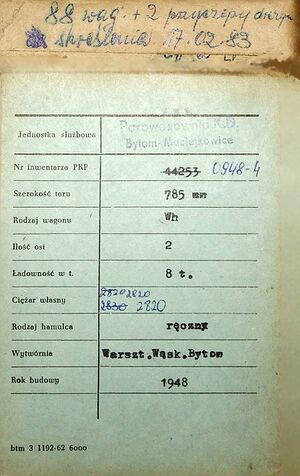 88 wag. + 2 przyczepy
skreślenia 17.02-83
Jednostka służbowa
Parowozownia K.D.
Bytom-Maciejkowice
Nr inwentarza PKP 44253 0948-4
Szerokość toru 785 mm
Rodzaj wagonu Wh
Ilość osi 2
Ładowność w t. 8 t.
2820 2820
Ciężar własny 2830 2820
Rodzaj hamulca ręczny
Wytwórnia Warszt.Wąsk.Bytom
Rok budowy 1948
btm 3 1192-62 6000